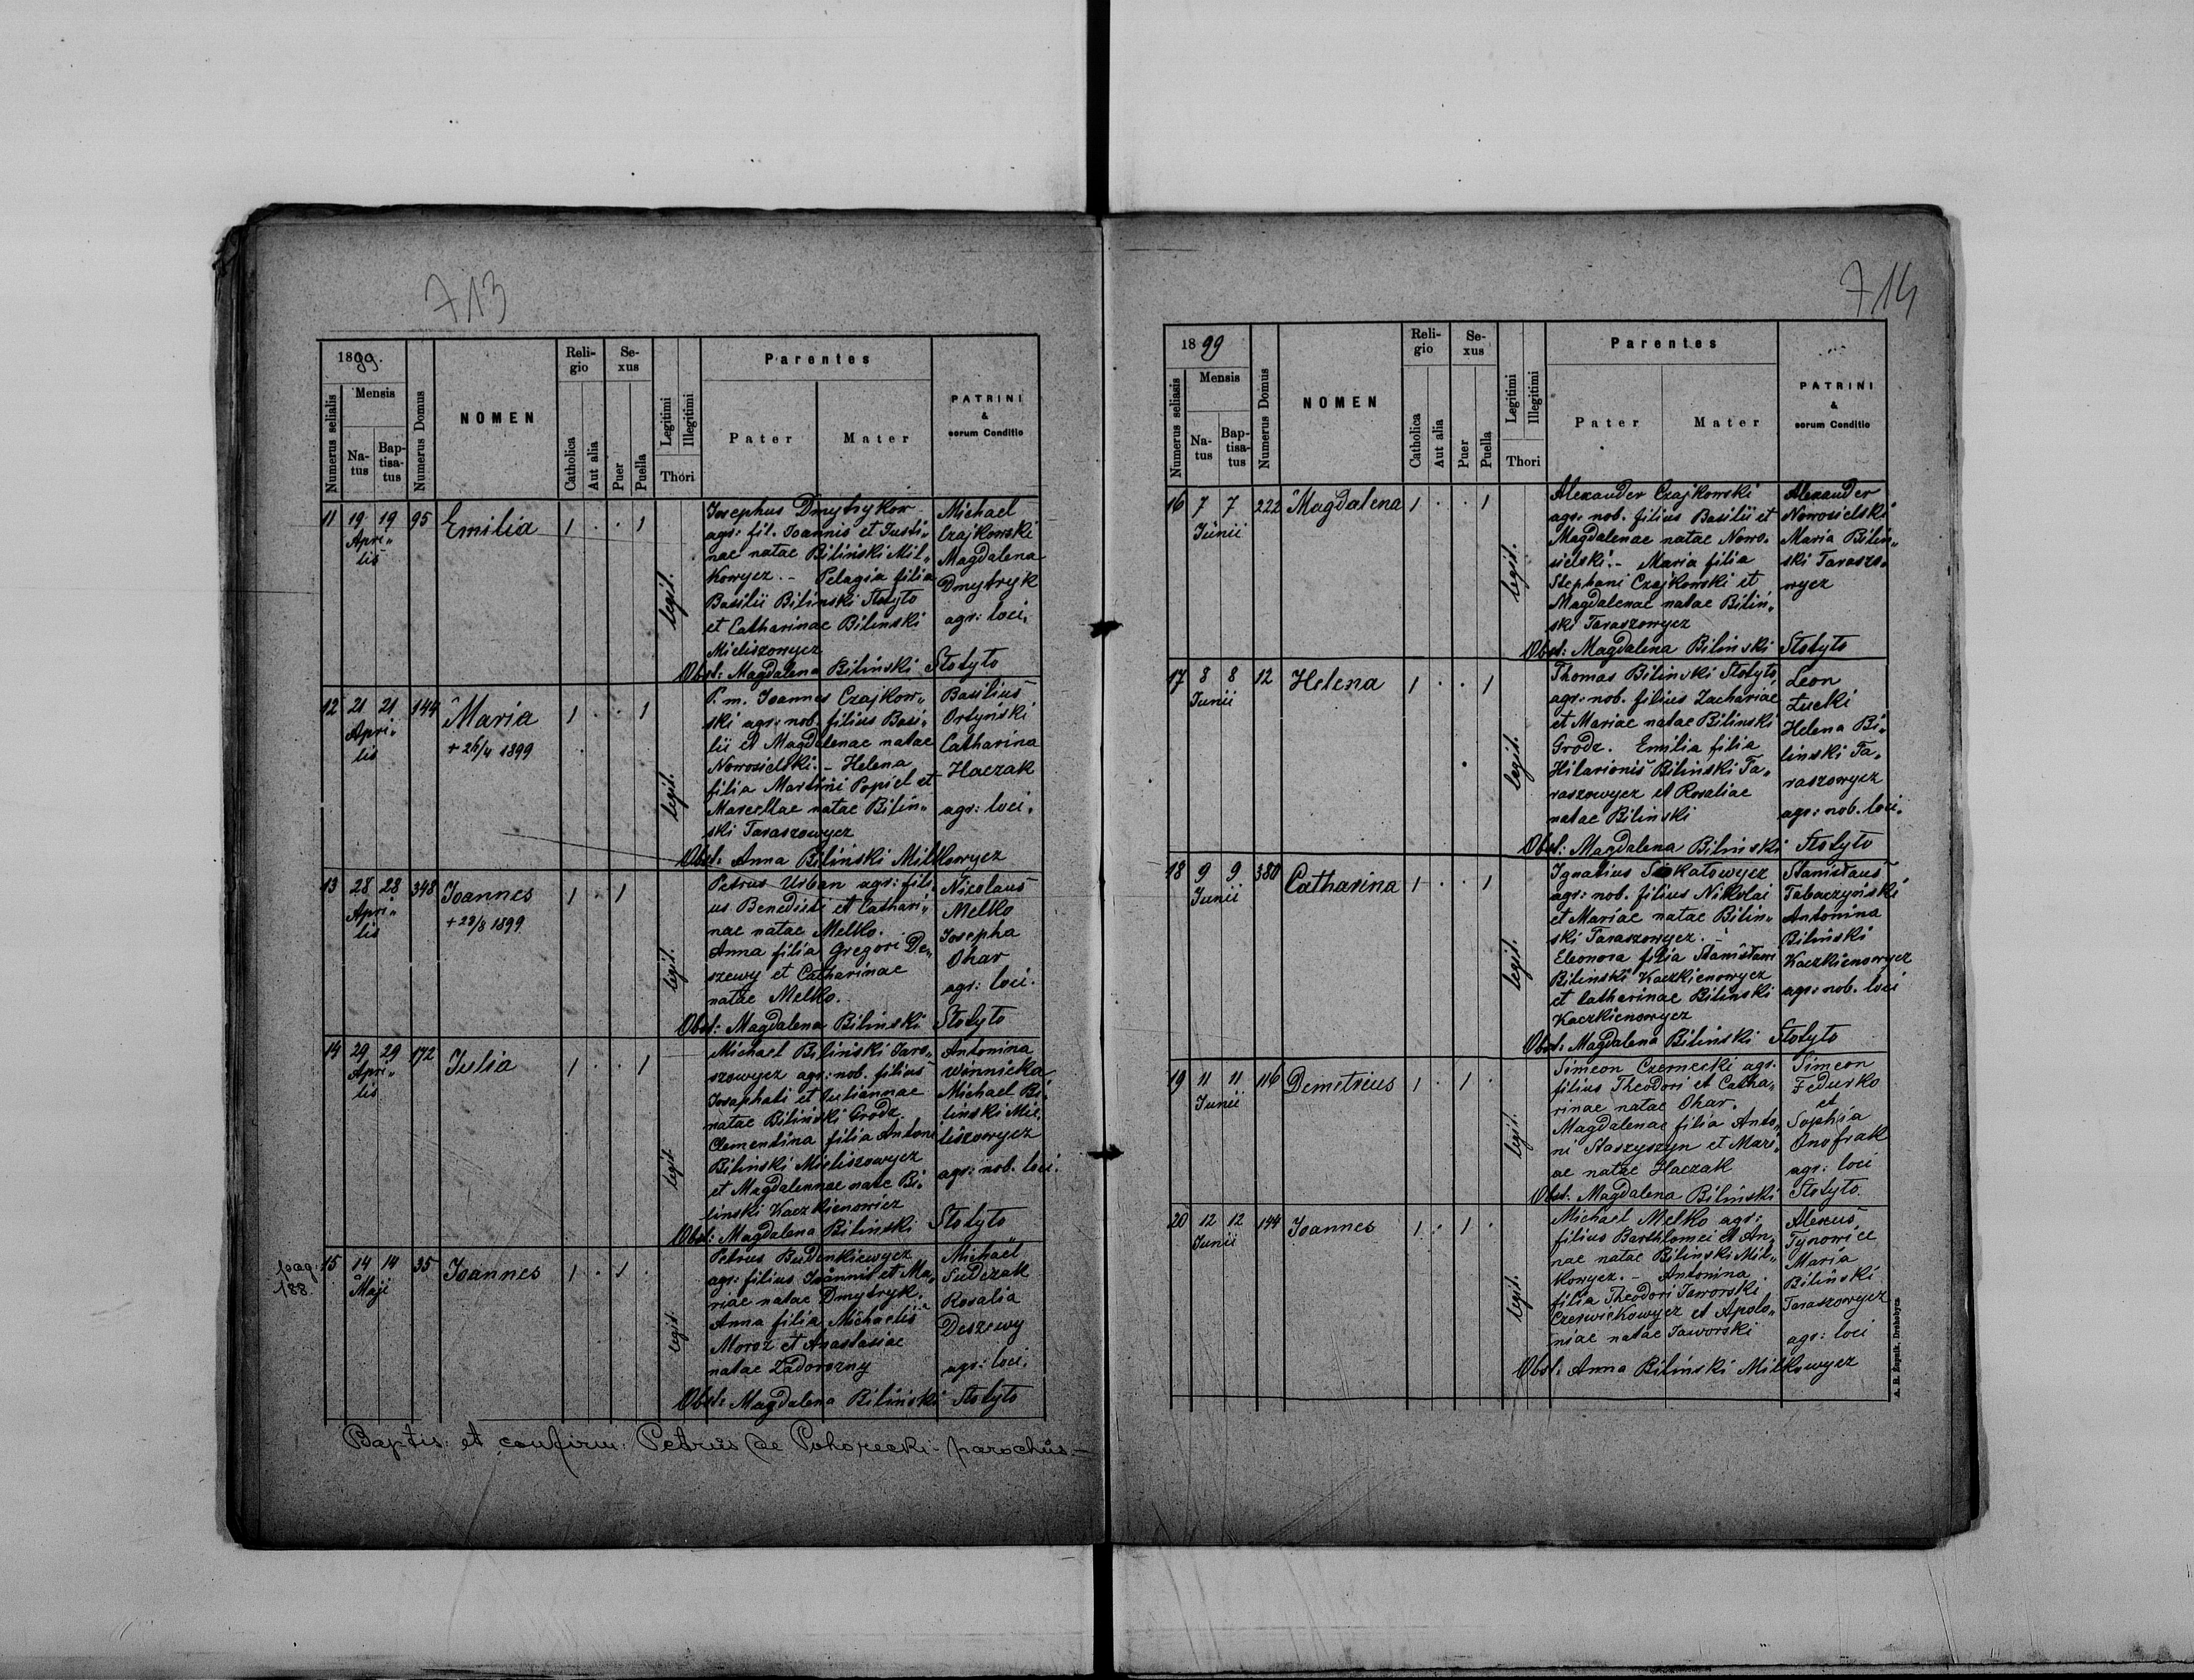 713
1899.
Numerus serialis
Mensis
Na-
tus
Bap-
tisa-
tus
Numerus Domus
NOMEN
Reli-
gio
Catholica
Aut alia
Se-
xus
Puer
Puella
Legitimi
Illegitimi
Thori
Parentes
Pater
Mater
PATRINI
&
eorum Conditio
11 19 19 95 Emilia 1 . . 1
Apri„
lis
legit.
Josephus Dmytrykow
agr: fil. Joannis et Justi„
nae natae Biliński Mil„
kowycz. - Pelagia filia
Basilii Biliński Stołyto
et Catharinae Biliński
Mieliszowycz
Michael
Czajkowski
Magdalena
Dmytryk
agr: loci.
Obst: Magdalena Biliński Stołyto
12 21 21 144 Maria 1 . . 1
Apri„
lis
+ 26/4 1899
legit.
P. m. Joannes Czajkow„
ski agr: nob. filius Basi„
lii et Magdalenae natae
Nowosielski. - Helena
filia Martini Popiel et
Marcellae natae Biliń„
ski Taraszowycz
Basilius
Ortyński
Catharina
Haczak
agr: loci.
Obst: Anna Biliński Milkowycz
13 28 28 348 Joannes 1 . 1
Apri„
lis
+ 29/8 1899
legit.
Petrus Urban agr: fili„
us Benedicti et Cathari„
nae natae Melko.
Anna filia Gregori De„
szewy et Catharinae
natae Melko.
Nicolaus
Melko
Josepha
Ohar
agr: loci.
Obst: Magdalena Biliński Stołyto
14 29 29 172 Julia 1 . . 1
Apri„
lis
legit
Michael Biliński Tara„
szowycz agr: nob. filius
Josaphati et Juliannae
natae Biliński Grodz.
Clementina filia Antoni
Biliński Mieliszowycz
et Magdalennae natae Bi„
linski Kaczkienowicz
Antonina
Winnicka
Michael Bi„
linski Mie„
liszowycz
agr: nob. loci.
Obst: Magdalena Biliński Stołyto
pag:
188.
15 14 14 35 Joannes 1 . 1 .
Maji
legit.
Petrus Budenkiewycz
agr: filius Joannis et Ma„
riae natae Dmytryk.
Anna filia Michaelis
Moroz et Anastasiae
natae Zadorozny
Michael
Sudczak
Rosalia
Deszewy
agr: loci.
Obst: Magdalena Biliński Stołyto
Baptis: et confirm: Petrus de Pohorecki - parochus -
714
1899
Numerus seliasis
Mensis
Na-
tus
Bap-
tisa-
tus
Numerus Domus
NOMEN
Reli-
gio
Catholica
Aut alia
Se-
xus
Puer
Puella
Legitimi
Illegitimi
Thori
Parentes
Pater
Mater
PATRINI
&
eorum Conditio
16 7 7 222 Magdalena 1 . . 1
Junii
legit.
Alexander Czajkowski
agr: nob. filius Basilii et
Magdalenae natae Nowo„
sielski. - Maria filia
Stephani Czajkowski et
Magdalenae natae Biliń„
ski Taraszowycz
Alexander
Nowosielski
Maria Biliń„
ski Taraszo„
wycz
Obst: Magdalena Biliński Stołyto
17 8 8 12 Helena 1 . . 1
Junii
legit.
Thomas Biliński Stołyto
agr: nob. filius Zachariae
et Mariae natae Biliński
Grodz. Emilia filia
Hilarionis Biliński Ta„
raszowycz et Rosaliae
natae Biliński
Leon
Łucki
Helena Bi„
linski Ta„
raszowycz
agr: nob. loci.
Obst: Magdalena Biliński Stołyto
18 9 9 380 Catharina 1 . . 1
Junii
legit.
Ignatius Siokałowycz
agr: nob. filius Nikolai
et Mariae natae Biliń„
ski Taraszowycz. -
Eleonora filia Stanislawi
Biliński Kaczkienowycz
et Catharinae Biliński
Kaczkienowycz
Stanislaus
Tabaczyński
Antonina
Biliński
Kaczkienowycz
agr: nob. loci
Obst: Magdalena Biliński Stołyto
19 11 11 116 Demetrius 1 . 1 .
Junii
legit.
Simeon Czernecki agr:
filius Theodori et Catha„
rinae natae Ohar.
Magdalenae filia Anto„
ni Staszyszyn et Mari„
ae natae Haczak
Simeon
Fedurko
et
Sophia
Onofrak
agr: loci
Obst: Magdalena Biliński Stołyto.
20 12 12 144 Joannes 1 . 1 .
Junii
legit.
Michael Melko agr:
filius Barthlomei et An„
nae natae Biliński Mil„
kowycz. - Antonina
filia Theodori Jaworski
Czerwickowycz et Apolo„
niae natae Jaworski
Alexius
Tynowiec
Maria
Biliński
Taraszowycz
agr: loci
Obst: Anna Biliński Milkowycz